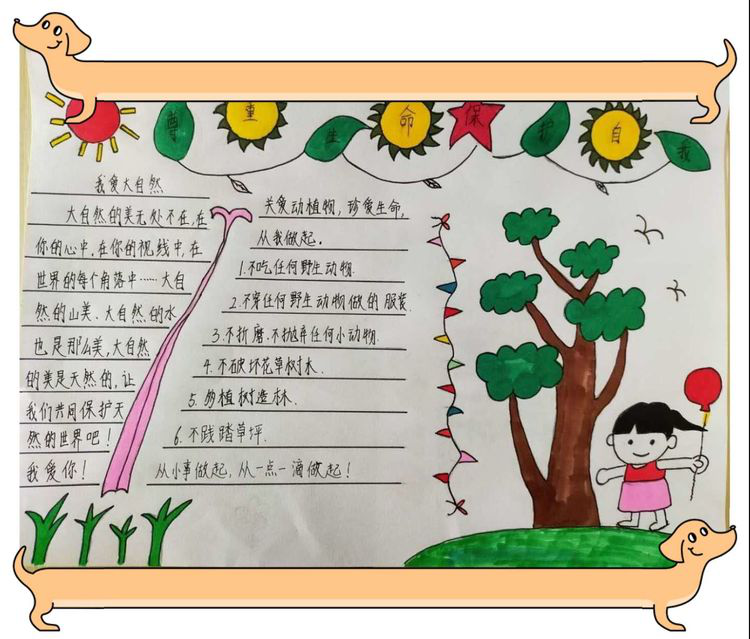 尊重生命保护自我
我爱大自然
大自然的美无处不在,在
你的心中,在你的视线中,在
世界的每个角落中……大自
然的山美、大自然的水
也是那么美,大自然
的美是天然的,让
我们共同保护天
然的世界吧！
我爱你！
关爱动植物，珍爱生命，
从我做起。
1.不吃任何野生动物.
2.不穿任何野生动物做的服装.
3.不折磨.不抛弃任何小动物.
4.不破坏花草树木.
5.多植树造林.
6.不践踏草坪.
从小事做起，从一点一滴做起！